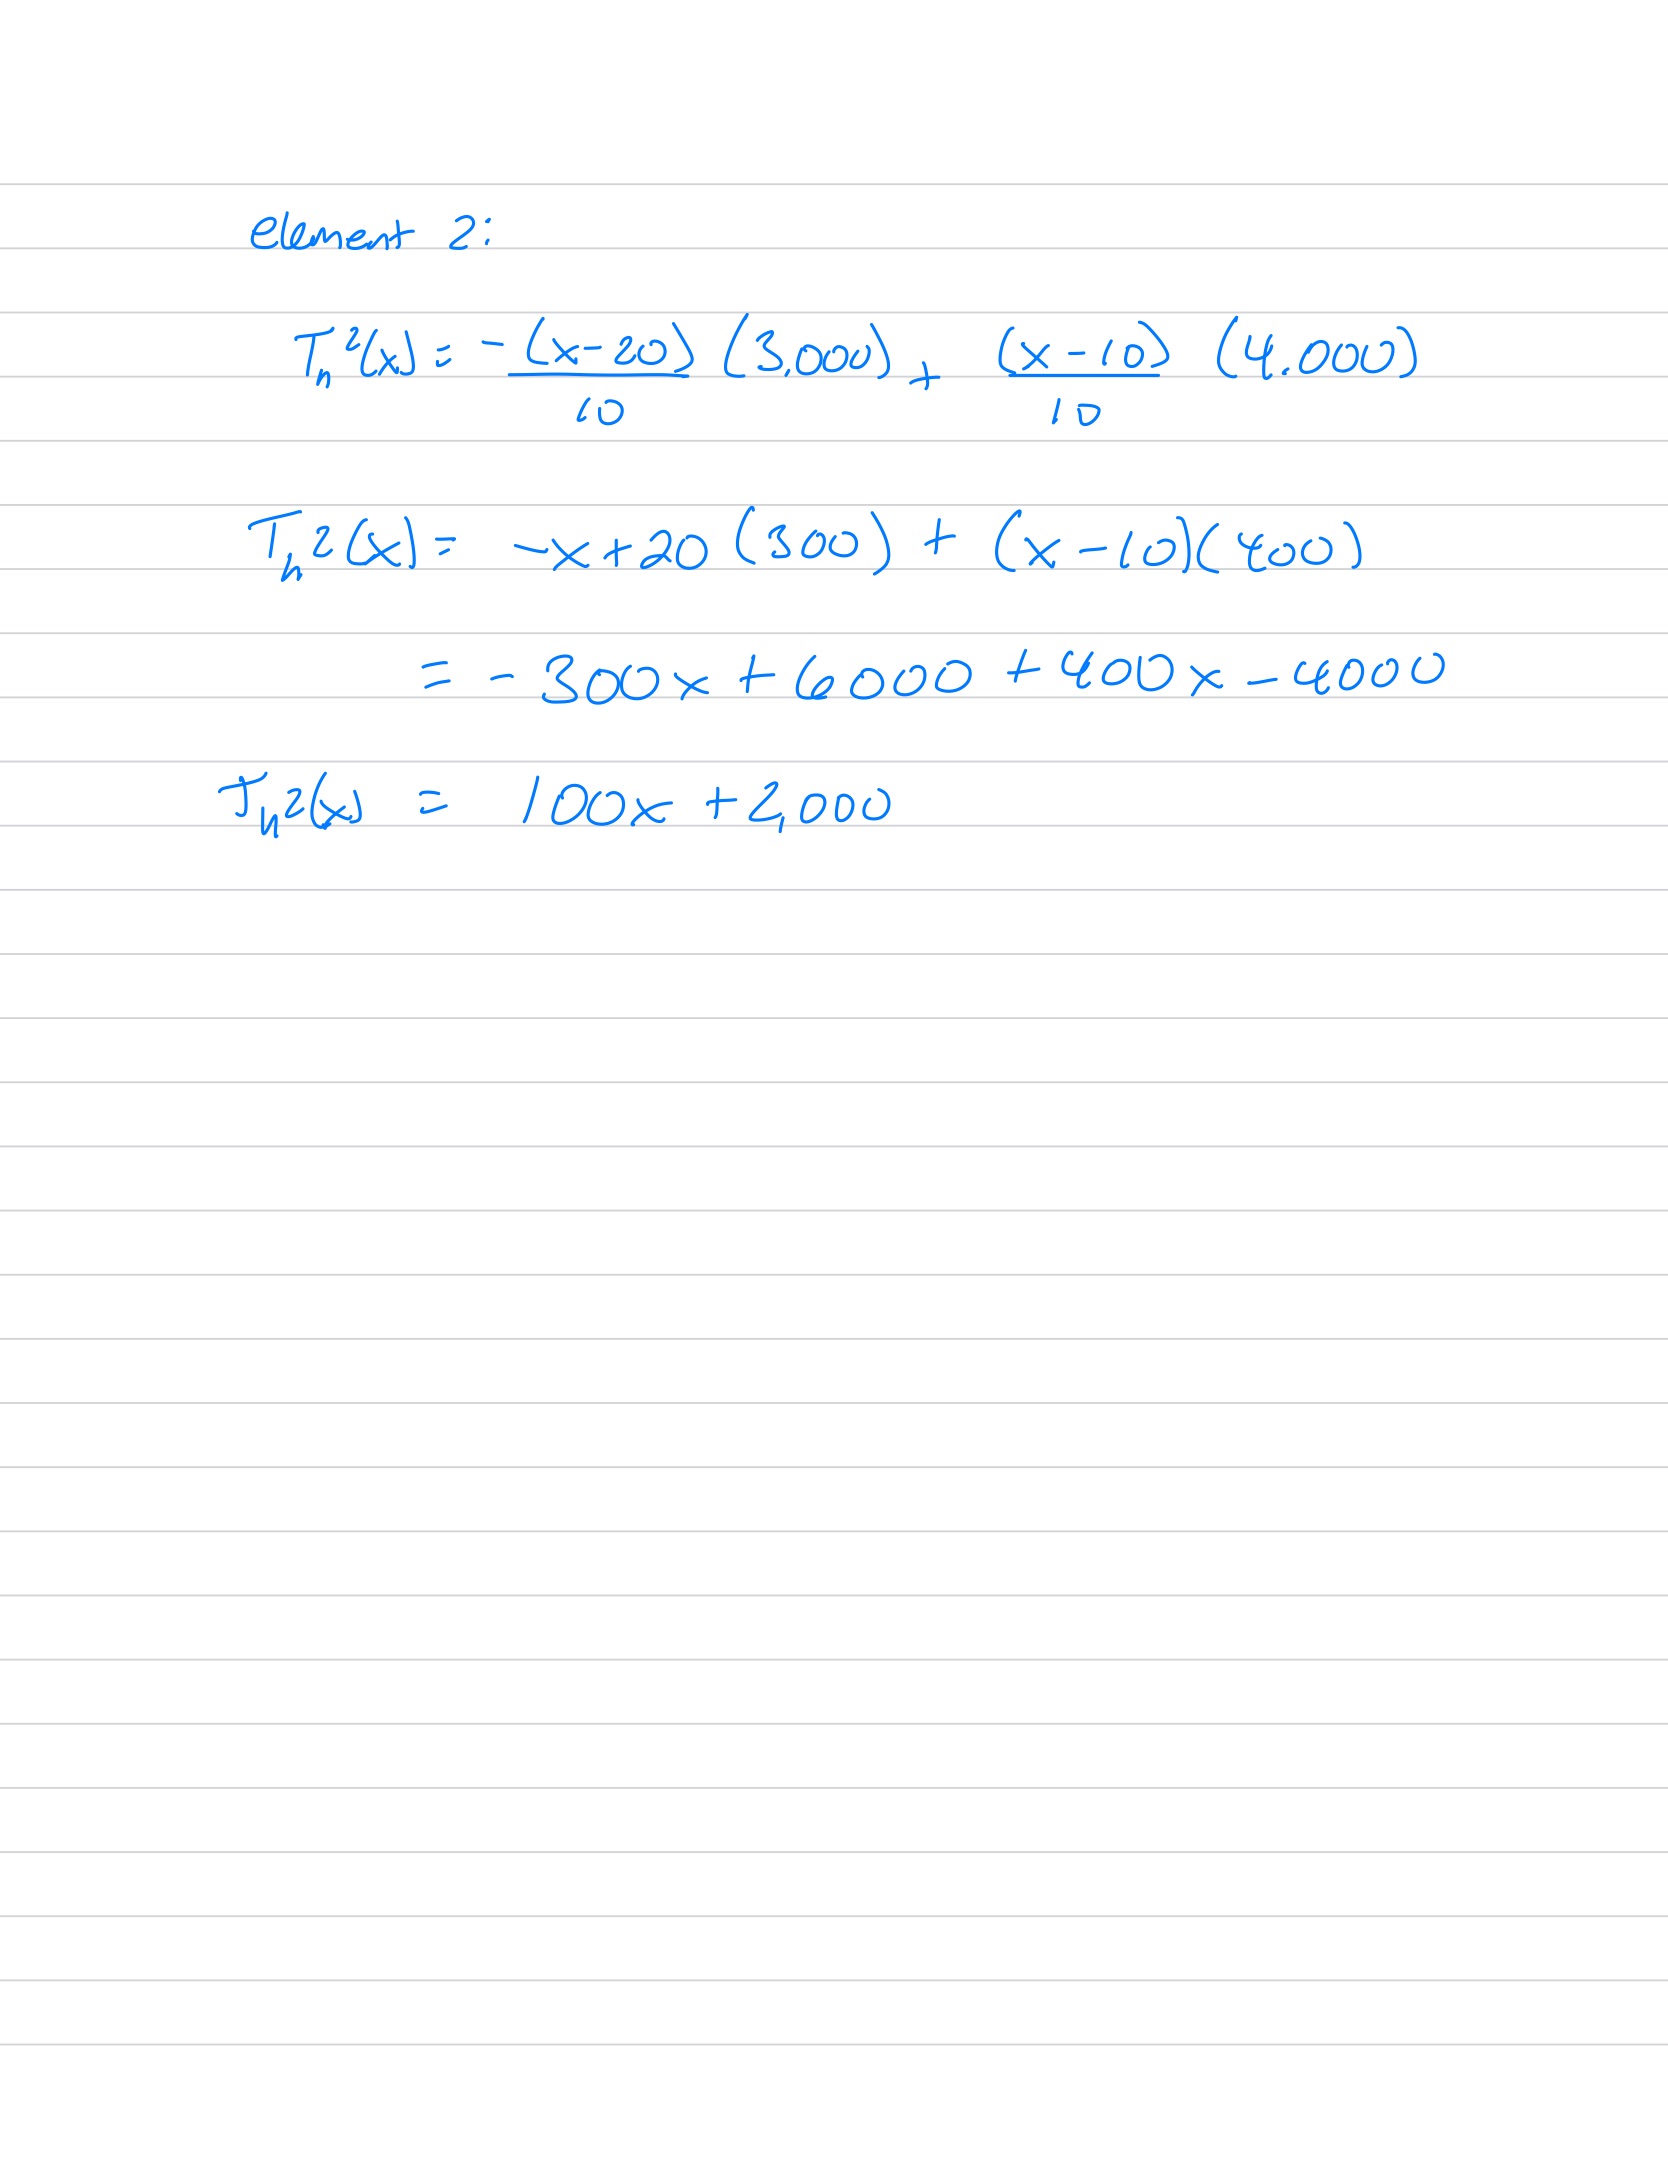 element 2:
Tₕ²(x) = -(x-20)/10 (3,000) + (x-10)/10 (4.000)
Tₕ2(x) = -x+20 (300) + (x-10)(400)
= -300x + 6000 + 400x - 4000
Tₕ2(x) = 100x + 2,000